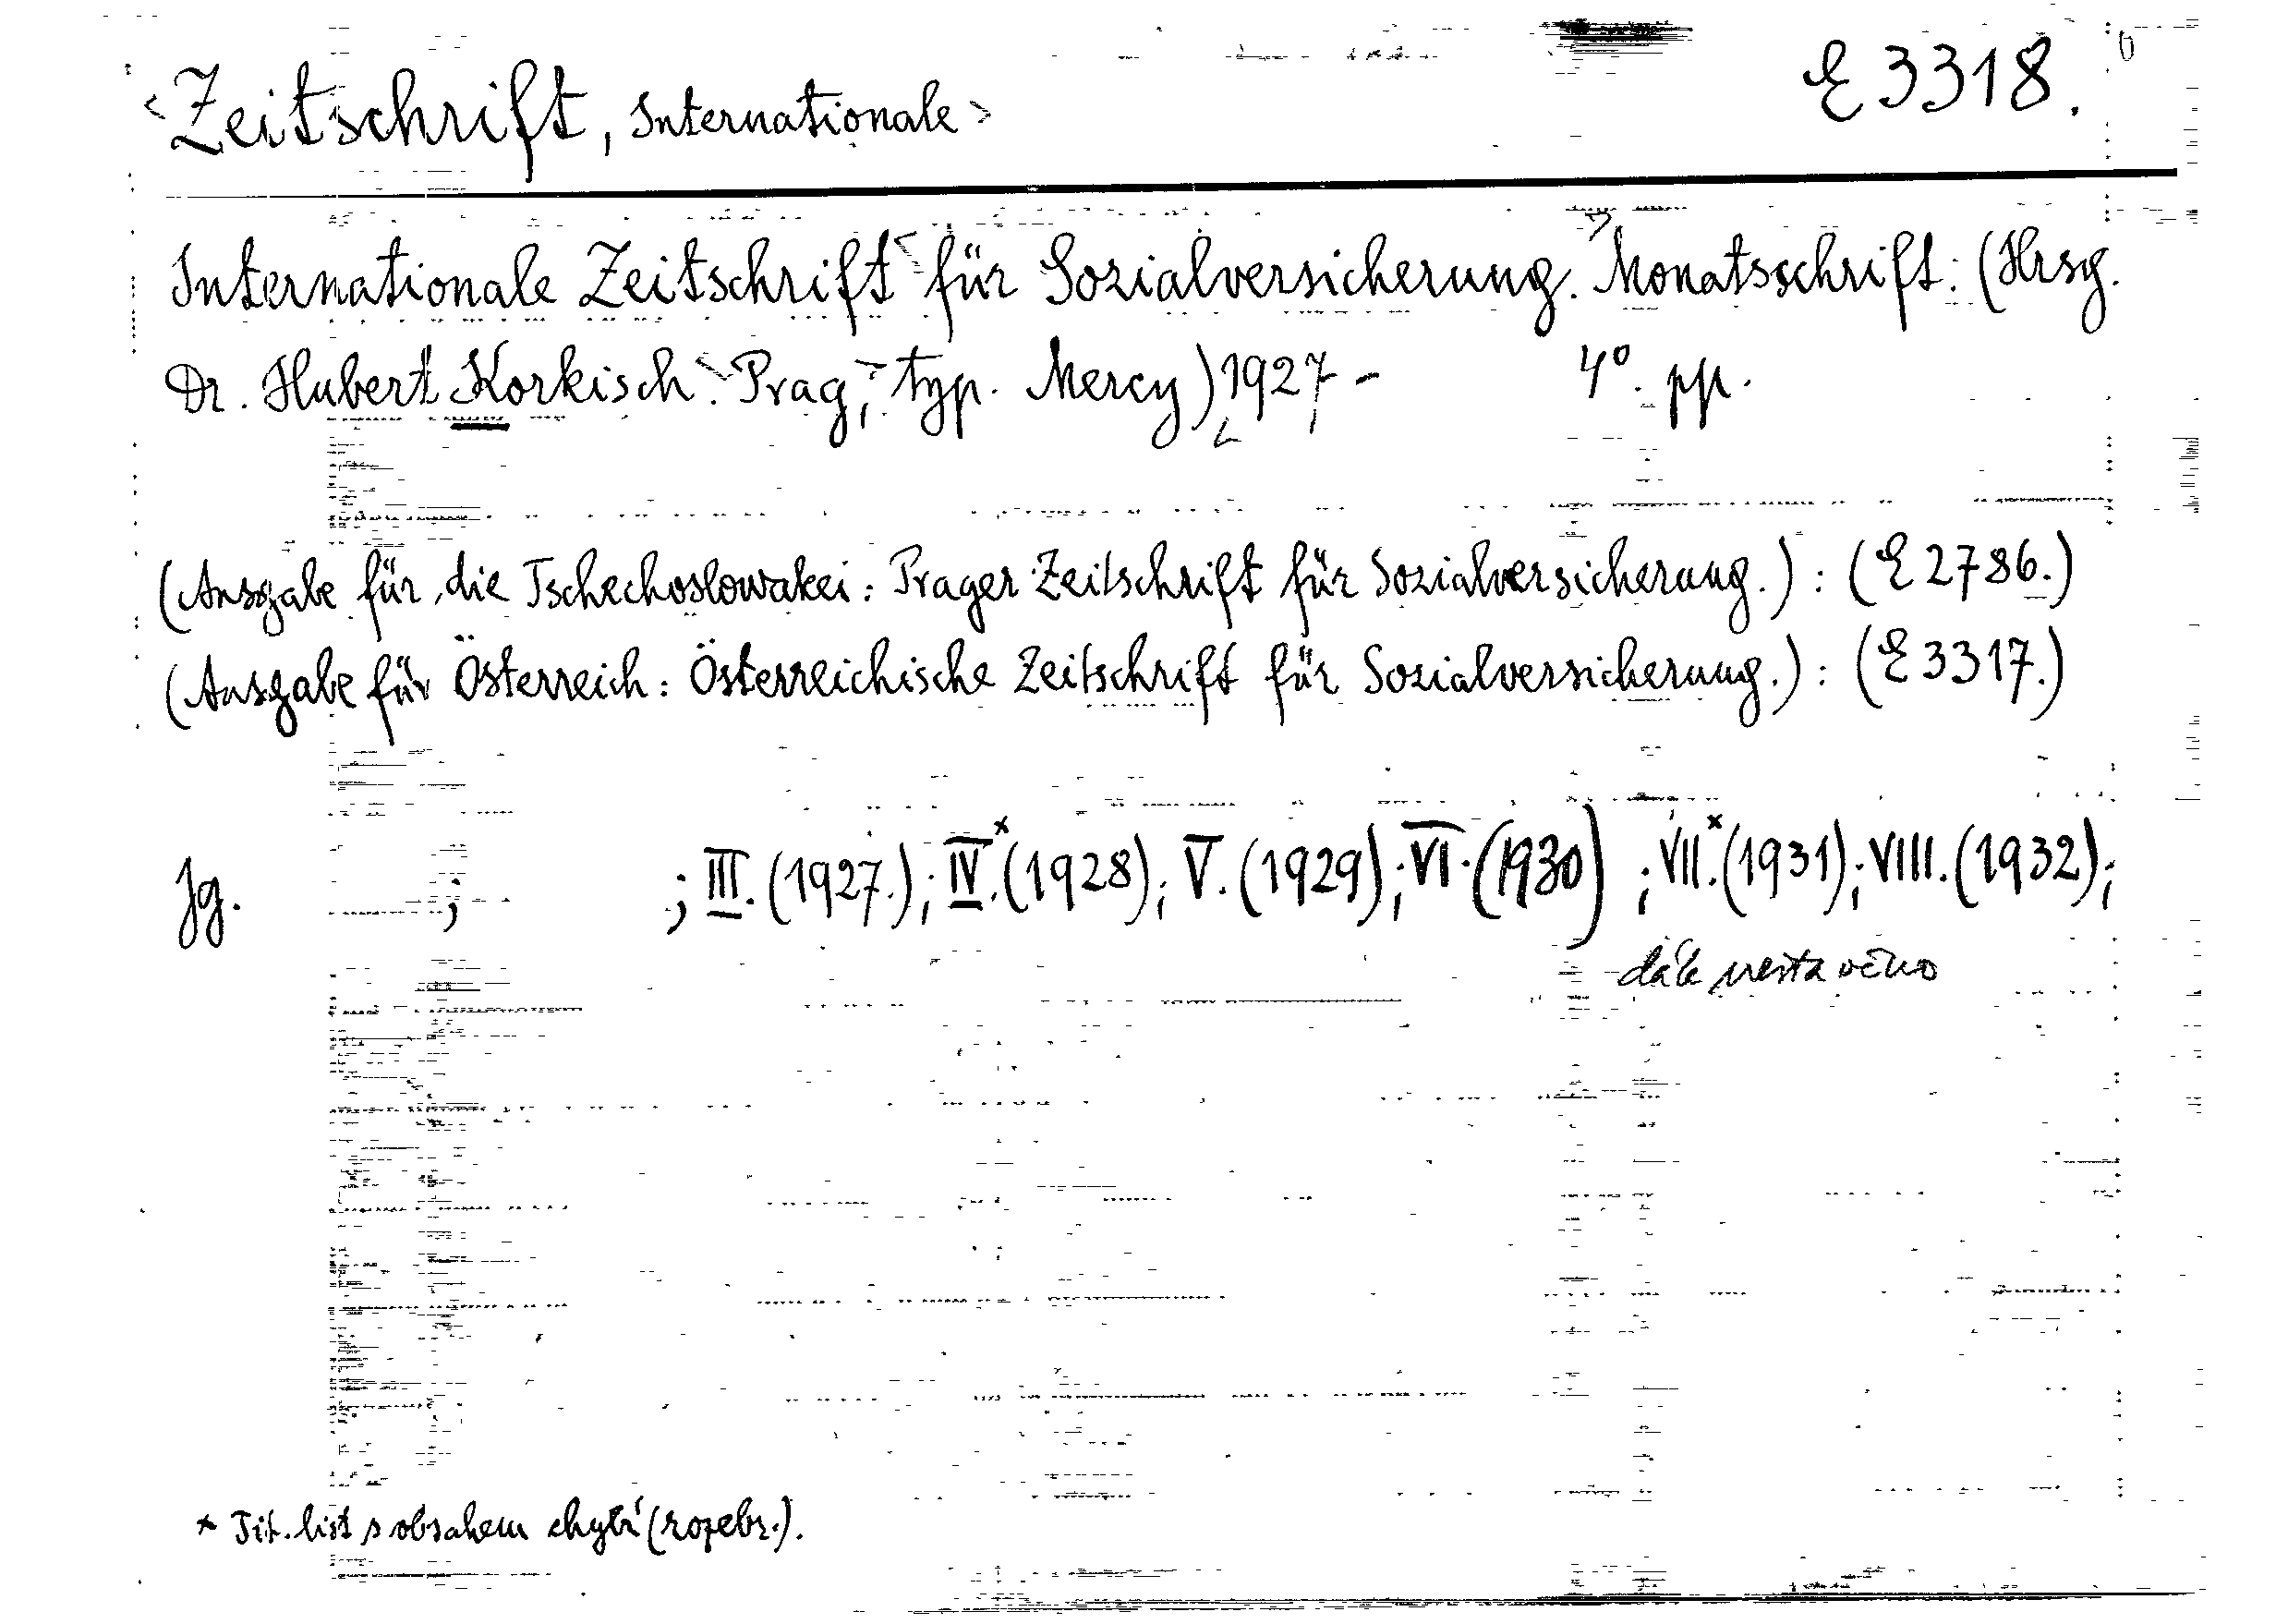 <Zeitschrift, Internationale> E 3318.
Internationale Zeitschrift für Sozialversicherung. Monatsschrift: (Hrsg.
Dr. Hubert Korkisch. Prag, typ. Mercy) 1927- 4°. pp.
(Ausgabe für die Tschechoslowakei: Prager Zeitschrift für Sozialversicherung.): (E 2786.)
(Ausgabe für Österreich: Österreichische Zeitschrift für Sozialversicherung.): (E 3317.)
Jg. ; ; III. (1927.); IV.* (1928); V. (1929); VI. (1930) ; VII.* (1931); VIII. (1932);
dále nesta věno
* Tit. list s obsahem chybí (rozebr.).